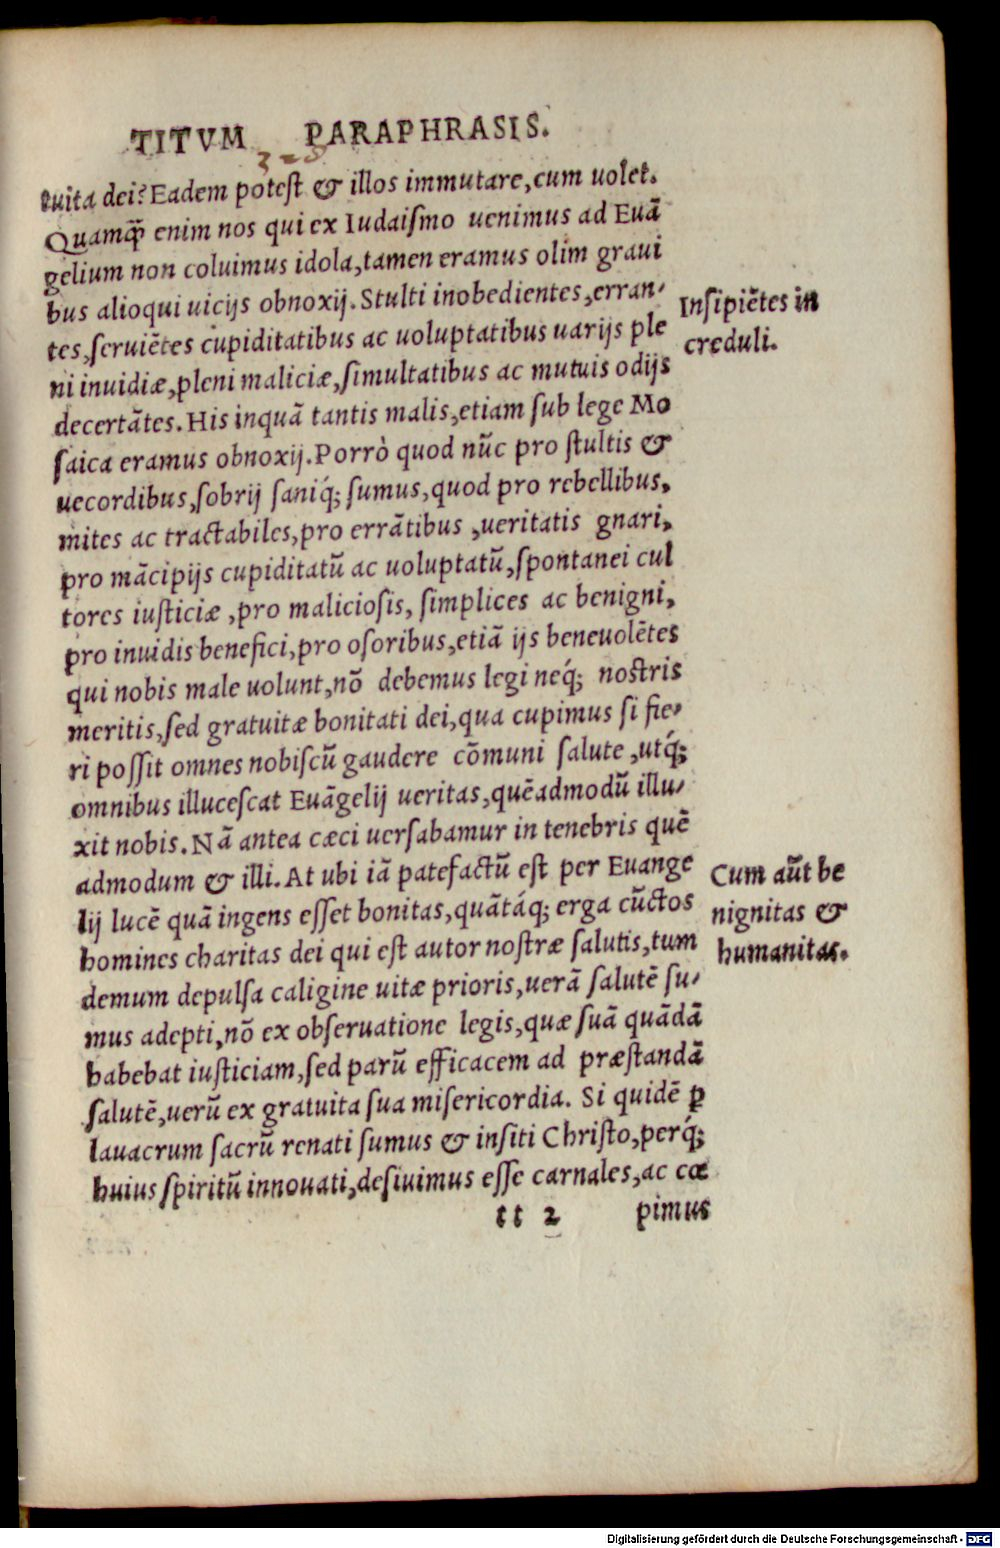 TITVM PARAPHRASIS.
328
tuita dei? Eadem potest & illos immutare, cum uolet.
Quamq̃ enim nos qui ex Iudaiſmo uenimus ad Euã
gelium non coluimus idola, tamen eramus olim graui
bus alioqui uicijs obnoxij. Stulti inobedientes, erran-
tes, ſeruiẽtes cupiditatibus ac uoluptatibus uarijs ple
ni inuidiæ, pleni maliciæ, ſimultatibus ac mutuis odijs
decertãtes. His inquã tantis malis, etiam ſub lege Mo
ſaica eramus obnoxij. Porrò quod nũc pro ſtultis &
uecordibus, ſobrij ſaniq́; ſumus, quod pro rebellibus,
mites ac tractabiles, pro errãtibus, ueritatis gnari,
pro mãcipijs cupiditatũ ac uoluptatũ, ſpontanei cul
tores iuſticiæ, pro malicioſis, ſimplices ac benigni,
pro inuidis benefici, pro oſoribus, etiã ijs beneuolẽtes
qui nobis male uolunt, nõ debemus legi neq́; nostris
meritis, ſed gratuitæ bonitati dei, qua cupimus ſi fie-
ri poſſit omnes nobiſcũ gaudere cõmuni ſalute, utq́;
omnibus illuceſcat Euãgelij ueritas, quẽadmodũ illu-
xit nobis. Nã antea cæci uerſabamur in tenebris quẽ
admodum & illi. At ubi iã patefactũ eſt per Euange
lij lucẽ quã ingens eſſet bonitas, quãtáq; erga cũctos
homines charitas dei qui eſt autor noſtræ ſalutis, tum
demum depulſa caligine uitæ prioris, uerã ſalutẽ ſu-
mus adepti, nõ ex obſeruatione legis, quæ ſuã quãdã
habebat iuſticiam, ſed parũ efficacem ad præſtandã
ſalutẽ, uerũ ex gratuita ſua miſericordia. Si quidẽ ꝑ
lauacrum ſacrũ renati ſumus & inſiti Chriſto, perq́;
huius ſpiritũ innouati, deſiuimus eſſe carnales, ac cœ
tt 2 pimus
Inſipiẽtes in
creduli.
Cum aũt be
nignitas &
humanitas.
Digitalisierung gefördert durch die Deutsche Forschungsgemeinschaft - DFG